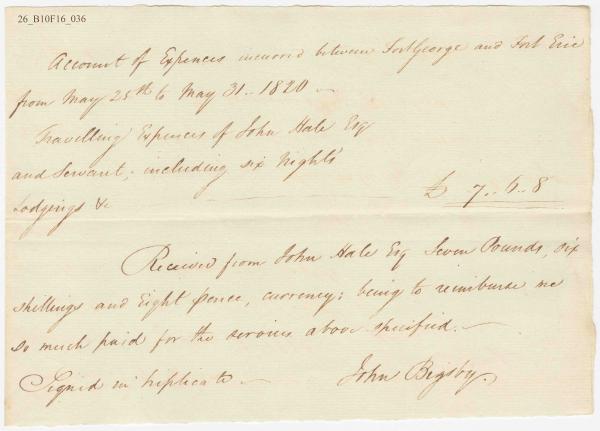 26_B10F16_036
Account of Expences incurred between Fort George and Fort Erie
from May 25th to May 31 .. 1820
Travelling Expences of John Hale Esq
and Servant, including six Nights'
Lodgings &c
£ 7 .. 6 .. 8
Received from John Hale Esq Seven Pounds, six
shillings and Eight pence, currency; being to reimburse me
so much paid for the services above specified.
Signed in triplicate
John Bigsby.